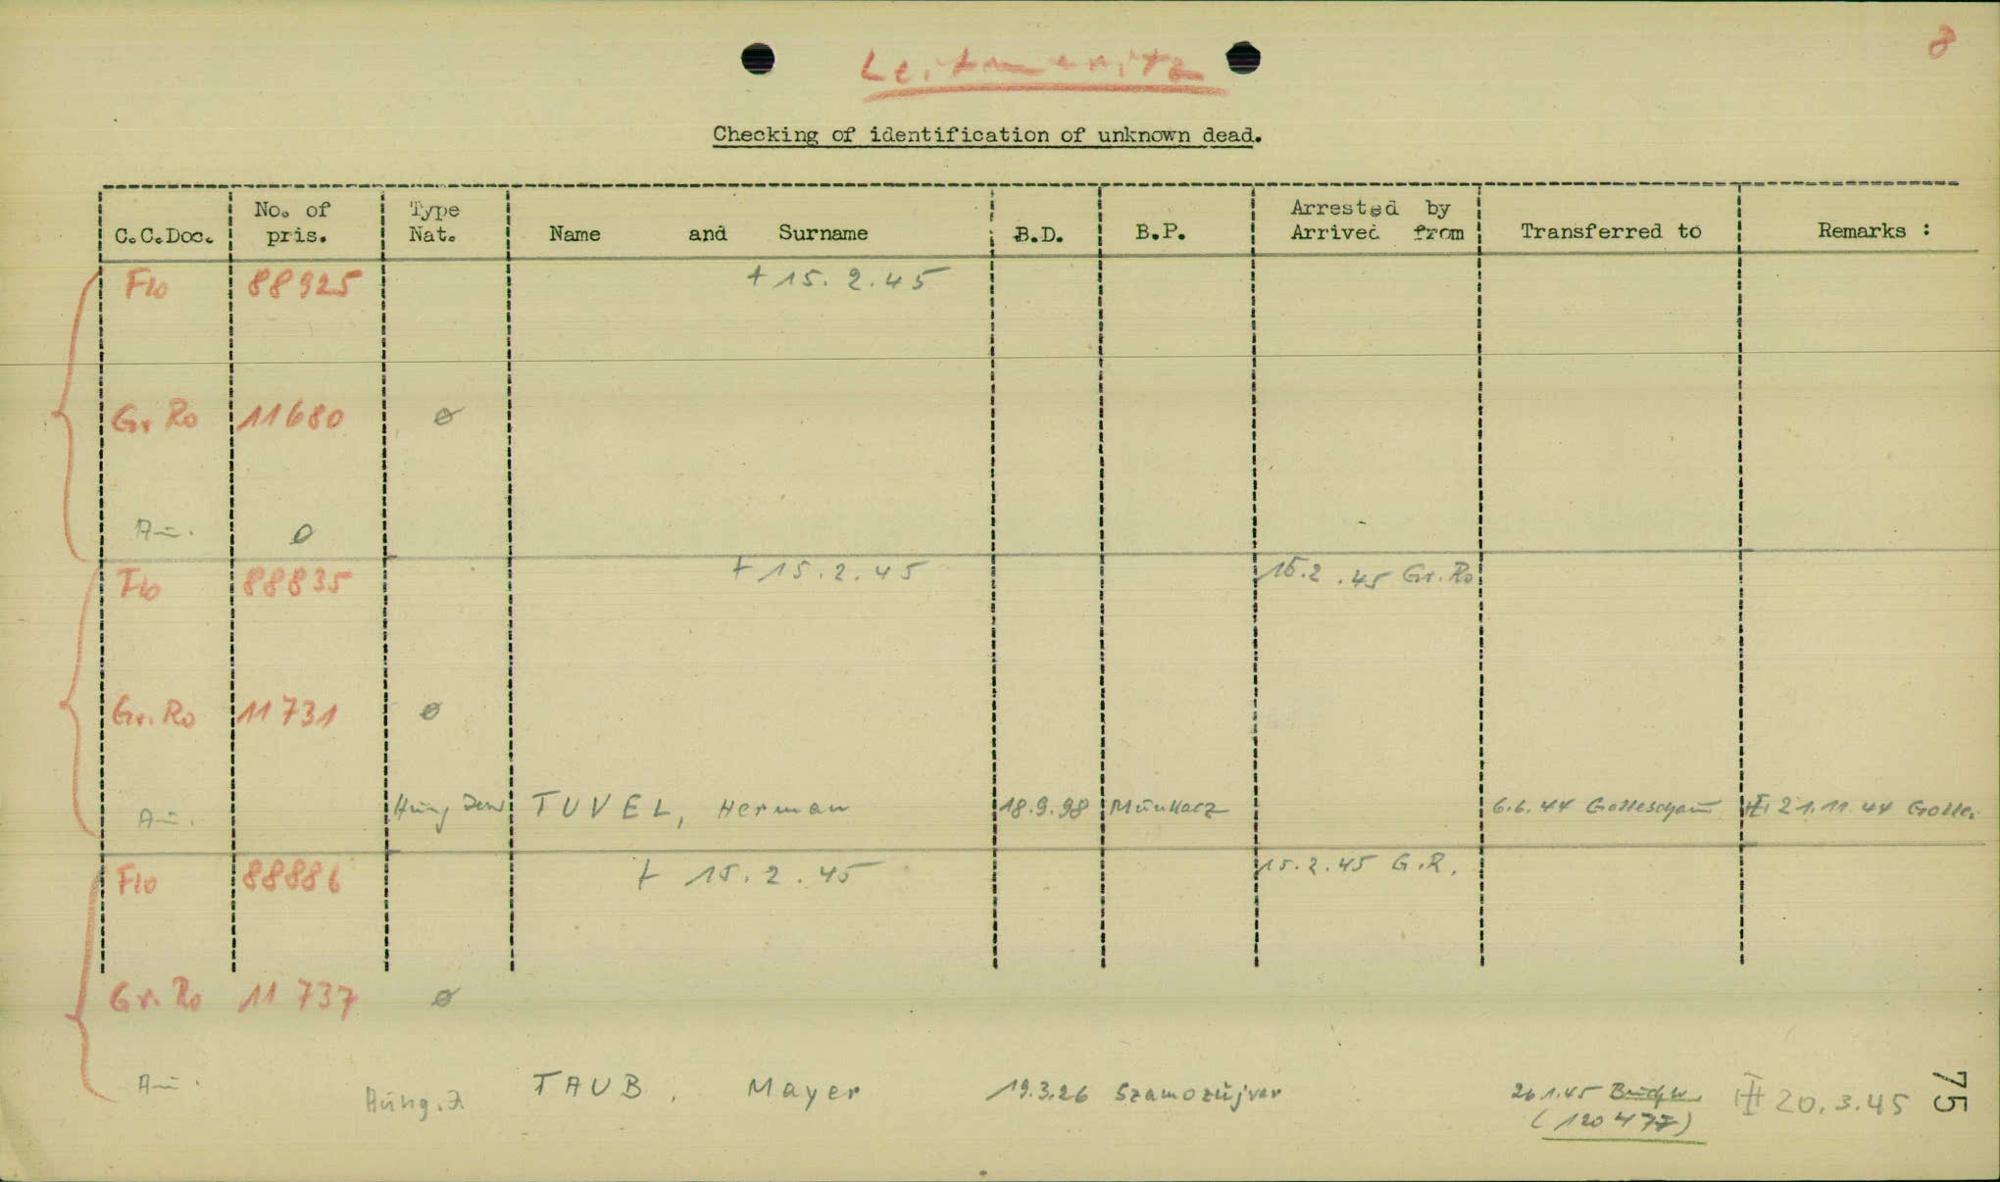 8
Leitmeritz
Checking of identification of unknown dead.
C.C.Doc. No. of pris. Type Nat. Name and Surname B.D. B.P. Arrested by Arrived from Transferred to Remarks :
Flo 88925 + 15.2.45
Gr. Ro 11680 ø
Au. 0
Flo 88835 + 15.2.45 15.2.45 Gr. Ro
Gr. Ro 11731 ø
Au. Hung TUVEL, Herman 18.9.98 Munkacz 6.6.44 21.11.44
Flo 88886 + 15.2.45 15.2.45 G.R.
Gr. Ro 11737 ø
Au. Hung. J. TAUB, Mayer 19.3.26 Szamozujvar 26.1.45 Buchw. 20.3.45
(120477)
75